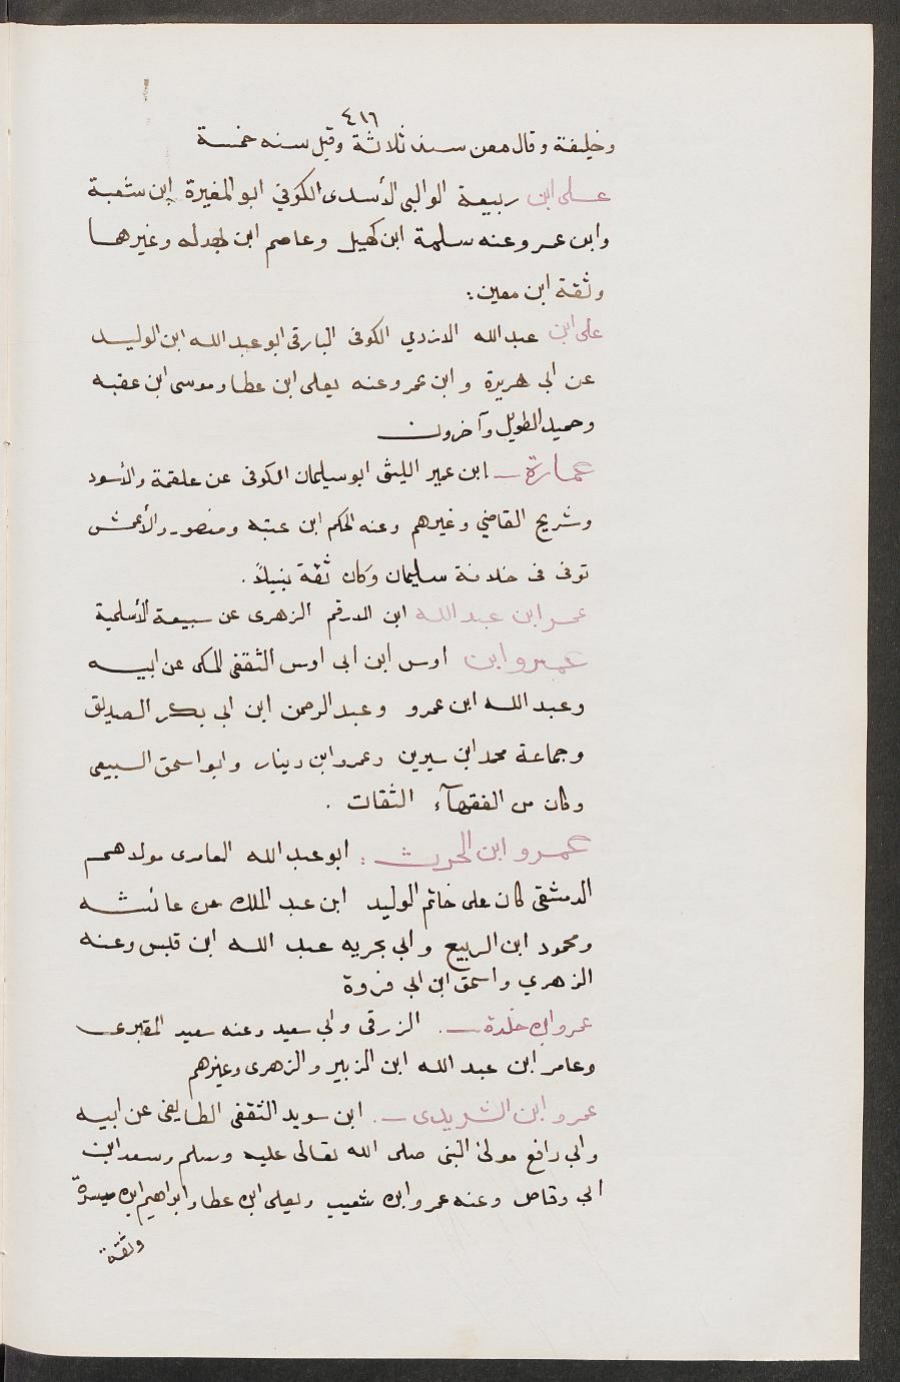 ٤١٦
وخليفة وقال معن سنة ثلاثة وقيل سنه خمسة
على ابن ربيعة الوالبى الأسدى الكوفي ابو المغيرة ابن شعبة
وابن عمر وعنه سلمة ابن كهيل وعاصم ابن بهدله وغيرهما
وثقة ابن معين :
على ابن عبد الله الازدي الكوفى البارقى ابو عبد الله ابن الوليد
عن ابى هريرة وابن عمر وعنه يعلى ابن عطا وموسى ابن عقبه
وحميد الطويل وآخرون
عمارة ابن عمير الليثى ابو سيلمان الكوفى عن علقمة والأسود
وشريح القاضي وغيرهم وعنه الحكم ابن عتبه ومنصور والأعمش
توفى فى خلافة سليمان وكان ثقة نبيلاً .
عمر ابن عبد الله ابن الارقم الزهرى عن سبيعة الأسلمية
عمرو ابن اوس ابن ابى اوس الثقفى المكى عن ابيه
وعبد الله ابن عمرو وعبد الرحمن ابن ابى بكر الصديق
وجماعة محمد ابن سيرين وعمرو ابن دينار وابو اسحق السبيعى
وكان من الفقهآء الثقات .
عمرو ابن الحرث : ابو عبد الله العامرى مولاهم
الدمشقى كان على خاتم الوليد ابن عبد الملك عن عائشه
ومحمود ابن الربيع وابى بحريه عبد الله ابن قيس وعنه
الزهري واسحق ابن ابى فروة
عمرو ابن خلدة . الزرقى وابى سعيد وعنه سعيد المقبرى
وعامر ابن عبد الله ابن الزبير والزهرى وغيرهم
عمرو ابن الشريدى . ابن سويد الثقفى الطايفى عن ابيه
وابى رافع مولى النبى صلى الله تعالى عليه وسلم وسعد ابن
ابى وقاص وعنه عمرو ابن شعيب ويعلى ابن عطا وابراهيم ابن ميسرة
وثقة